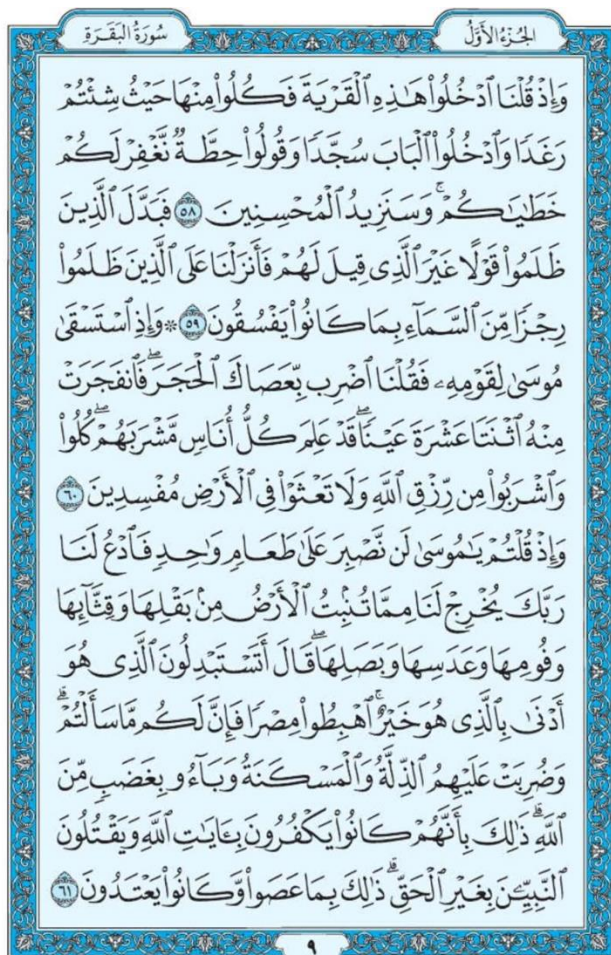 الجُزْءُ الأَوَّلُ
سُورَةُ البَقَرَةِ
وَإِذْ قُلْنَا ٱدْخُلُوا۟ هَـٰذِهِ ٱلْقَرْيَةَ فَكُلُوا۟ مِنْهَا حَيْثُ شِئْتُمْ
رَغَدًا وَٱدْخُلُوا۟ ٱلْبَابَ سُجَّدًا وَقُولُوا۟ حِطَّةٌ نَّغْفِرْ لَكُمْ
خَطَـٰيَـٰكُمْ ۚ وَسَنَزِيدُ ٱلْمُحْسِنِينَ ٥٨ فَبَدَّلَ ٱلَّذِينَ
ظَلَمُوا۟ قَوْلًا غَيْرَ ٱلَّذِى قِيلَ لَهُمْ فَأَنزَلْنَا عَلَى ٱلَّذِينَ ظَلَمُوا۟
رِجْزًا مِّنَ ٱلسَّمَآءِ بِمَا كَانُوا۟ يَفْسُقُونَ ٥٩ ۞ وَإِذِ ٱسْتَسْقَىٰ
مُوسَىٰ لِقَوْمِهِۦ فَقُلْنَا ٱضْرِب بِّعَصَاكَ ٱلْحَجَرَ ۖ فَٱنفَجَرَتْ
مِنْهُ ٱثْنَتَا عَشْرَةَ عَيْنًا ۖ قَدْ عَلِمَ كُلُّ أُنَاسٍ مَّشْرَبَهُمْ ۖ كُلُوا۟
وَٱشْرَبُوا۟ مِن رِّزْقِ ٱللَّهِ وَلَا تَعْثَوْا۟ فِى ٱلْأَرْضِ مُفْسِدِينَ ٦٠
وَإِذْ قُلْتُمْ يَـٰمُوسَىٰ لَن نَّصْبِرَ عَلَىٰ طَعَامٍ وَٰحِدٍ فَٱدْعُ لَنَا
رَبَّكَ يُخْرِجْ لَنَا مِمَّا تُنۢبِتُ ٱلْأَرْضُ مِنۢ بَقْلِهَا وَقِثَّآئِهَا
وَفُومِهَا وَعَدَسِهَا وَبَصَلِهَا ۖ قَالَ أَتَسْتَبْدِلُونَ ٱلَّذِى هُوَ
أَدْنَىٰ بِٱلَّذِى هُوَ خَيْرٌ ۚ ٱهْبِطُوا۟ مِصْرًا فَإِنَّ لَكُم مَّا سَأَلْتُمْ ۗ
وَضُرِبَتْ عَلَيْهِمُ ٱلذِّلَّةُ وَٱلْمَسْكَنَةُ وَبَآءُو بِغَضَبٍ مِّنَ
ٱللَّهِ ۗ ذَٰلِكَ بِأَنَّهُمْ كَانُوا۟ يَكْفُرُونَ بِـَٔايَـٰتِ ٱللَّهِ وَيَقْتُلُونَ
ٱلنَّبِيِّـۧنَ بِغَيْرِ ٱلْحَقِّ ۗ ذَٰلِكَ بِمَا عَصَوا۟ وَّكَانُوا۟ يَعْتَدُونَ ٦١
٩